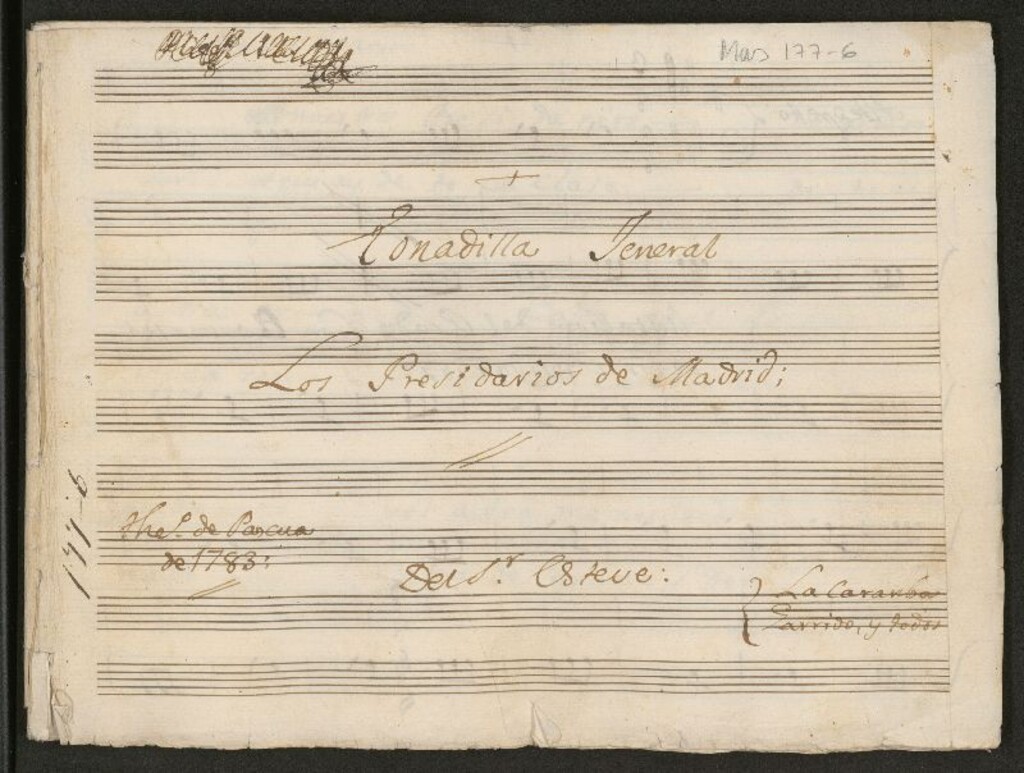 Mus 177-6
Tonadilla Jeneral
Los Presidarios de Madrid;
177-6
The.º de Pascua
de 1783:
Del S.r Esteve:
La Caramba
Garrido, y todos